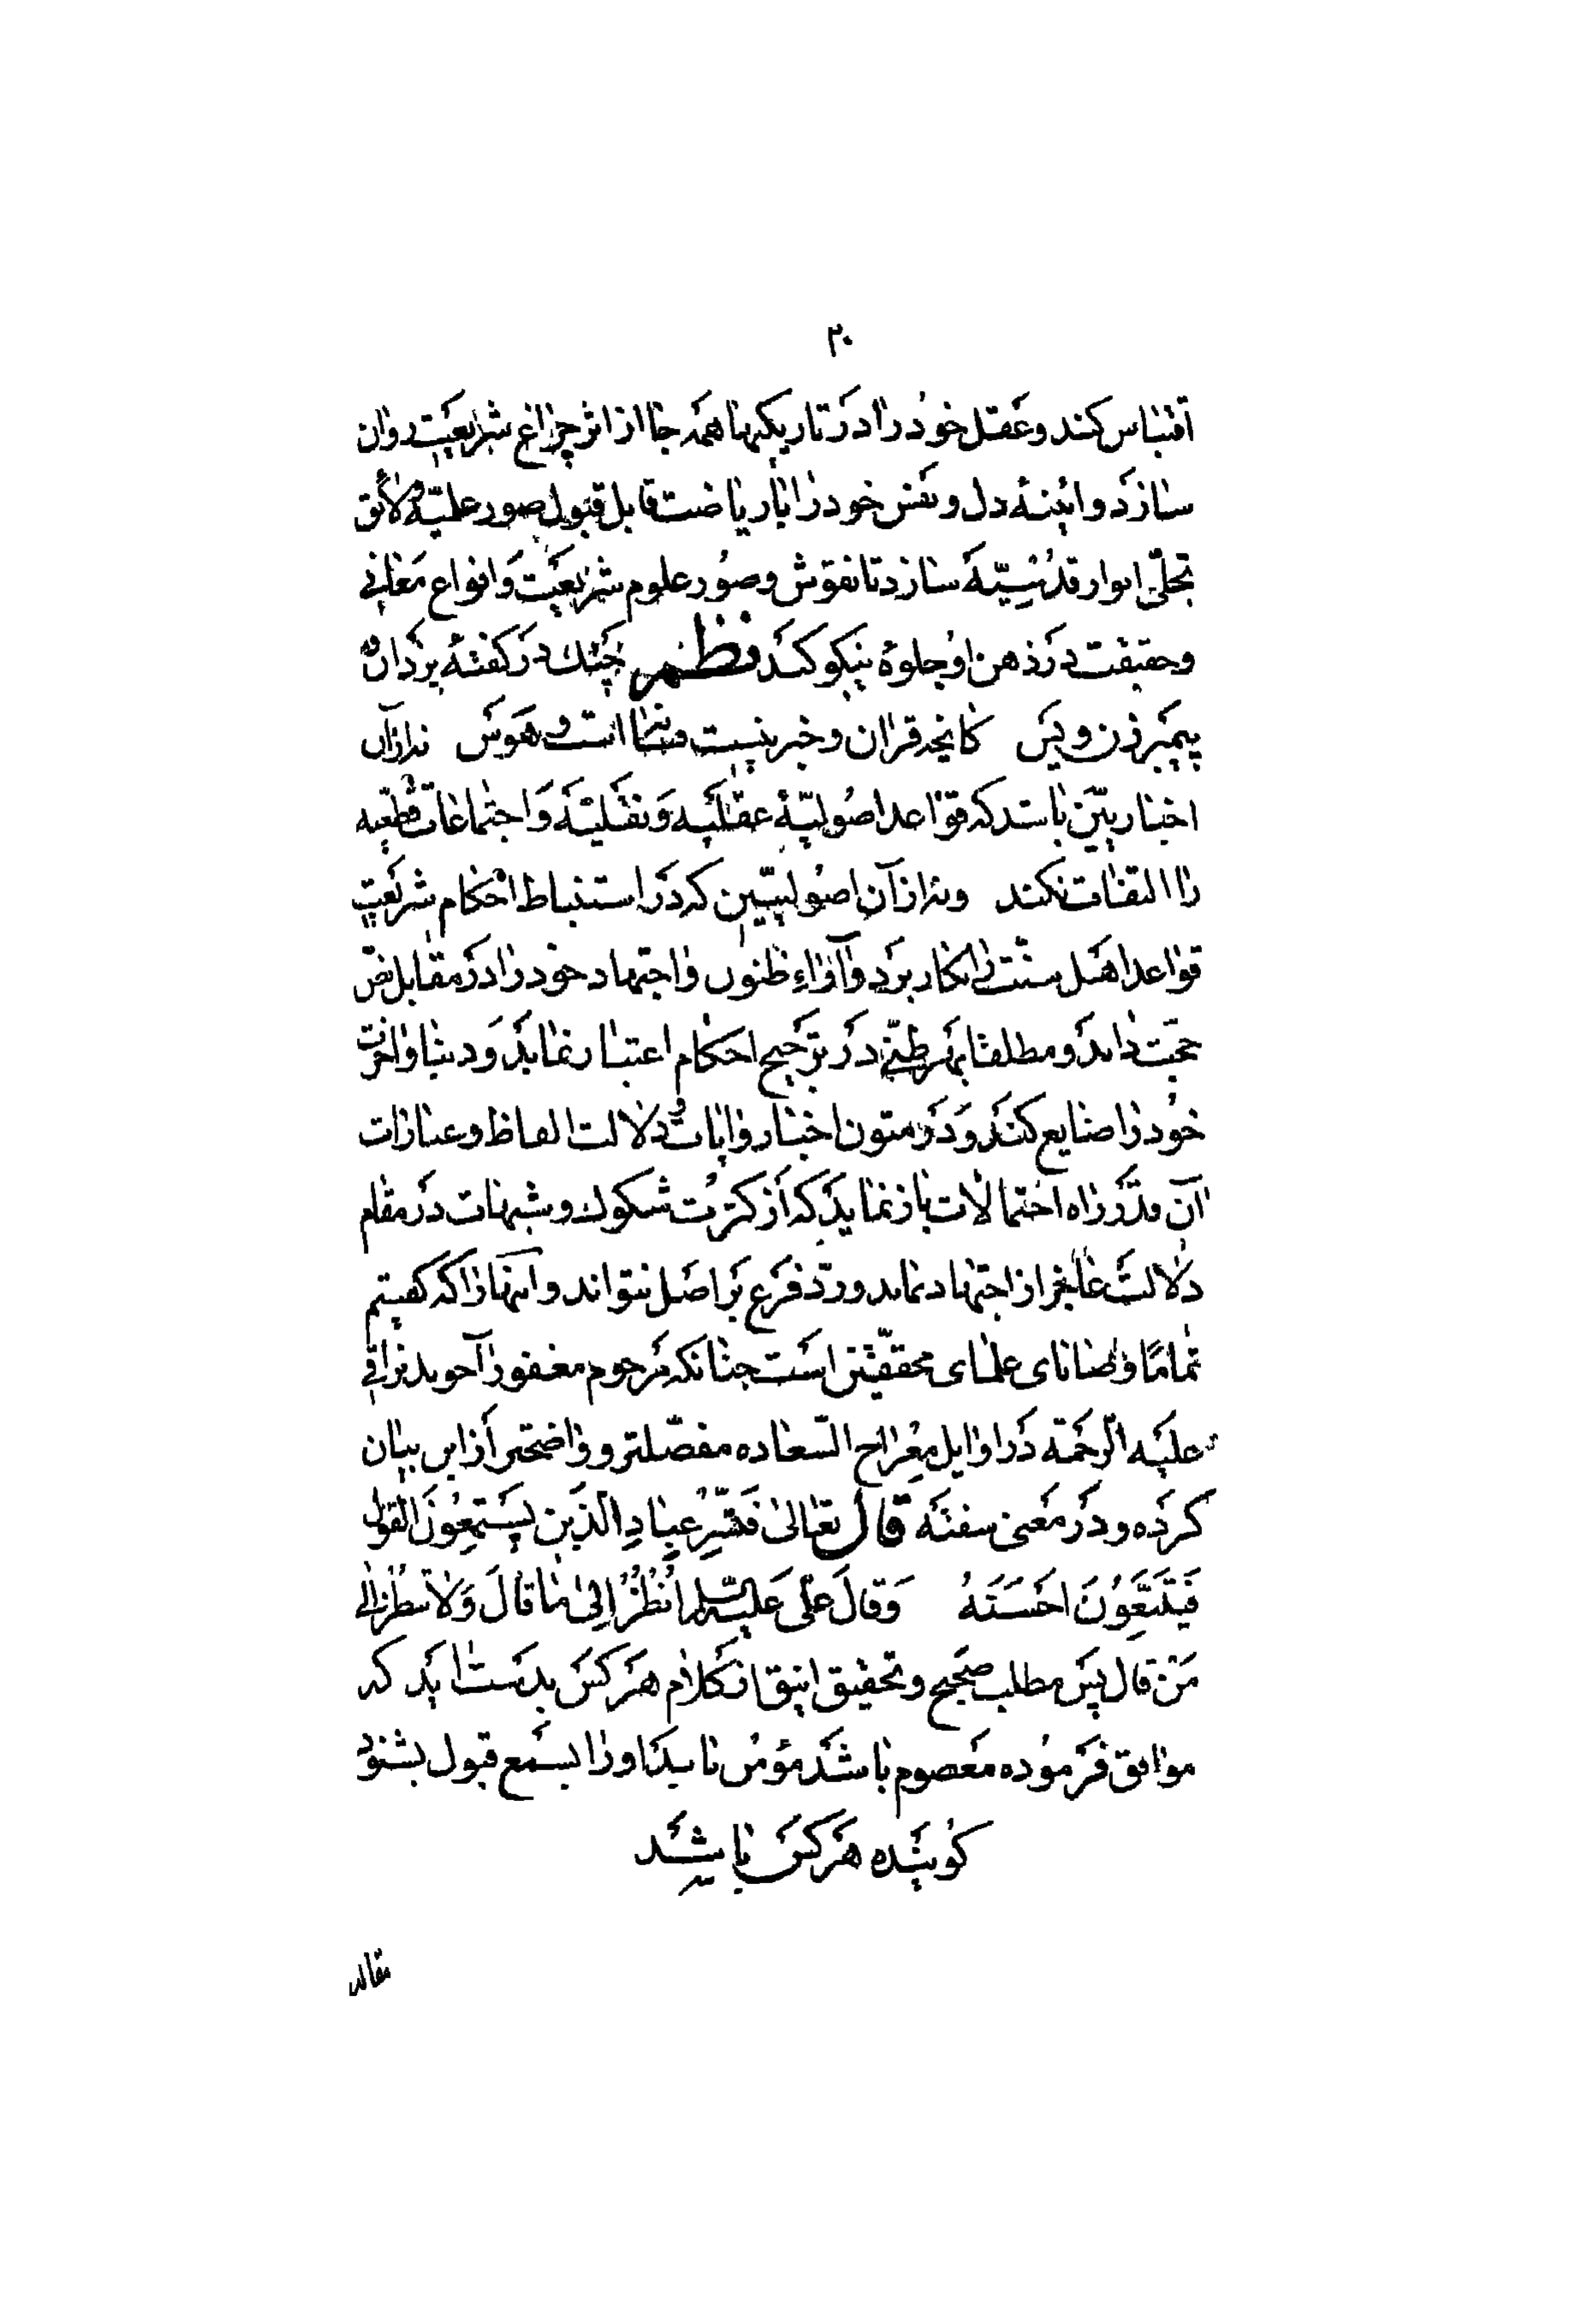 ۲۰
اقتباس کند و عقل خود را در تاریکیها همه جا از اثر چراغ شریعت روان
سازد و ایینهٔ دل و نفس خود را باریاضت قابل قبول صور علمیّه و لائق
تجلّی انوار قدسیّه سازد تا نقوش و صور علوم شریعت و انواع معانی
و حقیقت در ذهن او جلوهٔ نیکو کند فظهر چنك در کفتهٔ یزدان و
پیمبر زن و پس کانچه قران و خبر نیست است و هوس نه از آن
اخباریین باشد که قواعد اصولیّهٔ عقلیّه و نقلیّه و اجتماعات قطعیه
را التفات نکند و نه از آن اصولیین که در استنباط احکام شریعت
قواعد اهل سنت را بکار برد و آراء ظنون و اجتهاد خود را در مقابل نص
حجت داند و مطلقا بهر ظنّی در ترجیح احکام اعتبار نماید و دنیا و اخرت
خود را ضایع کند و در متون اخبار و ایات و دلالت الفاظ و عبارات
آن قدر راه احتمالات باز نماید که از کثرت شکوك و شبهات در مقام
دلالت عاجز از اجتهاد نماید و ردّ فرع بر اصل نتواند و اینها را که کفتیم
تمامًا وصایای علمای محققین است چنانکه مرحوم مغفور آخوند نراقی
علیه الرحمة در اوایل معراج السّعاده مفصّلتر و واضحتر از این بیان
کرده و در معنی سفته قال تعالی فَبَشِّرْ عِبادِ الَّذین یَسْتَمِعُونَ القول
فَیَتَّبِعُونَ اَحْسَنَهُ وَقالَ علی علیه السّلم اُنْظُرْ اِلی ما قالَ وَلا تنظر الی
مَنْ قال پس مطلب صحیح و تحقیق انیق از کلام هر کس بدست اید که
موافق فرموده معصوم باشد مؤمن باید او را بسمع قبول بشنود
کوینده هر کس باشد
مقاله